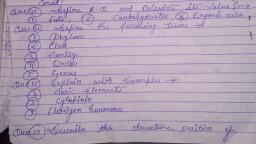 Que Define R.Q and Calculate its value for →
① Fats ② Carbohydrates ③ Organic acids
Que Define the following terms →
① Phylum
② Class
③ Family
④ Order
⑤ Genus
Que Explain with Examples →
① Toxic elements
② Cytokinin
③ Florigen hormone
Que Describe the structure, position of